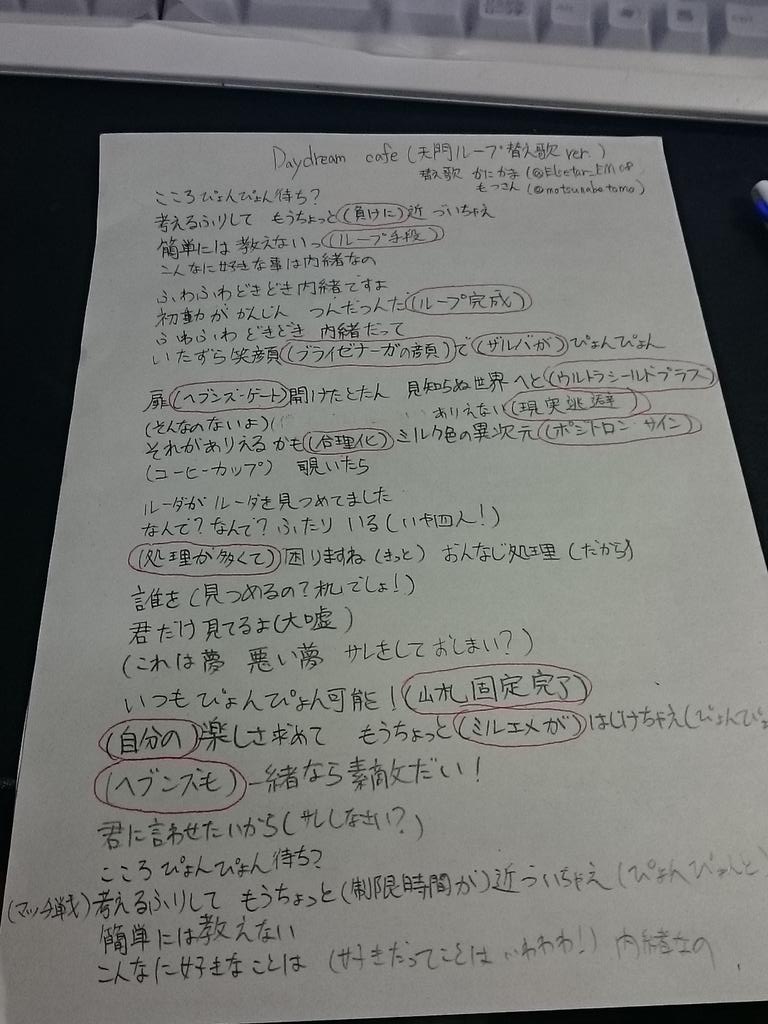 Daydream cafe (天門ループ替え歌 ver.)
替え歌 かにかま (@Elsetar_EM08
もつさん (@motsunabetomo)
こころぴょんぴょん待ち?
考えるふりして もうちょっと(負けに)近づいちゃえ
簡単には教えないっ(ループ手段)
こんなに好きな事は内緒なの
ふわふわどきどき内緒ですよ
初動がかんじん つんだつんだ(ループ完成)
ふわふわどきどき 内緒だって
いたずら笑顔(ブライゼナーガの顔)で(ザルバが)ぴょんぴょん
扉(ヘブンズ・ゲート)開けたとたん 見知らぬ世界へと(ウルトラシールドプラス)
(そんなのないよ) ありえない(現実逃避)
それがありえるかも(合理化)ミルク色の異次元(ポジトロン・サイン)
(コーヒーカップ) 覗いたら
ルーダがルーダを見つめてました
なんで?なんで?ふたりいる(いや四人!)
(処理が多くて)困りますね(きっと)おんなじ処理(だから)
誰を(見つめるの?机でしょ!)
君だけ見てるよ(大嘘)
(これは夢 悪い夢 サレをしておしまい?)
いつもぴょんぴょん可能!(山札固定完了)
(自分の)楽しさ求めて もうちょっと(ミルエメが)はじけちゃえ(ぴょんぴょ
(ヘブンズも)一緒なら素敵だい!
君に言わせたいから(サレしなさい?)
こころぴょんぴょん待ち?
(マッチ戦)考えるふりして もうちょっと(制限時間が)近づいちゃえ(ぴょんぴょんと)
簡単には教えない
こんなに好きなことは (好きだってことは いわわわ!) 内緒なの